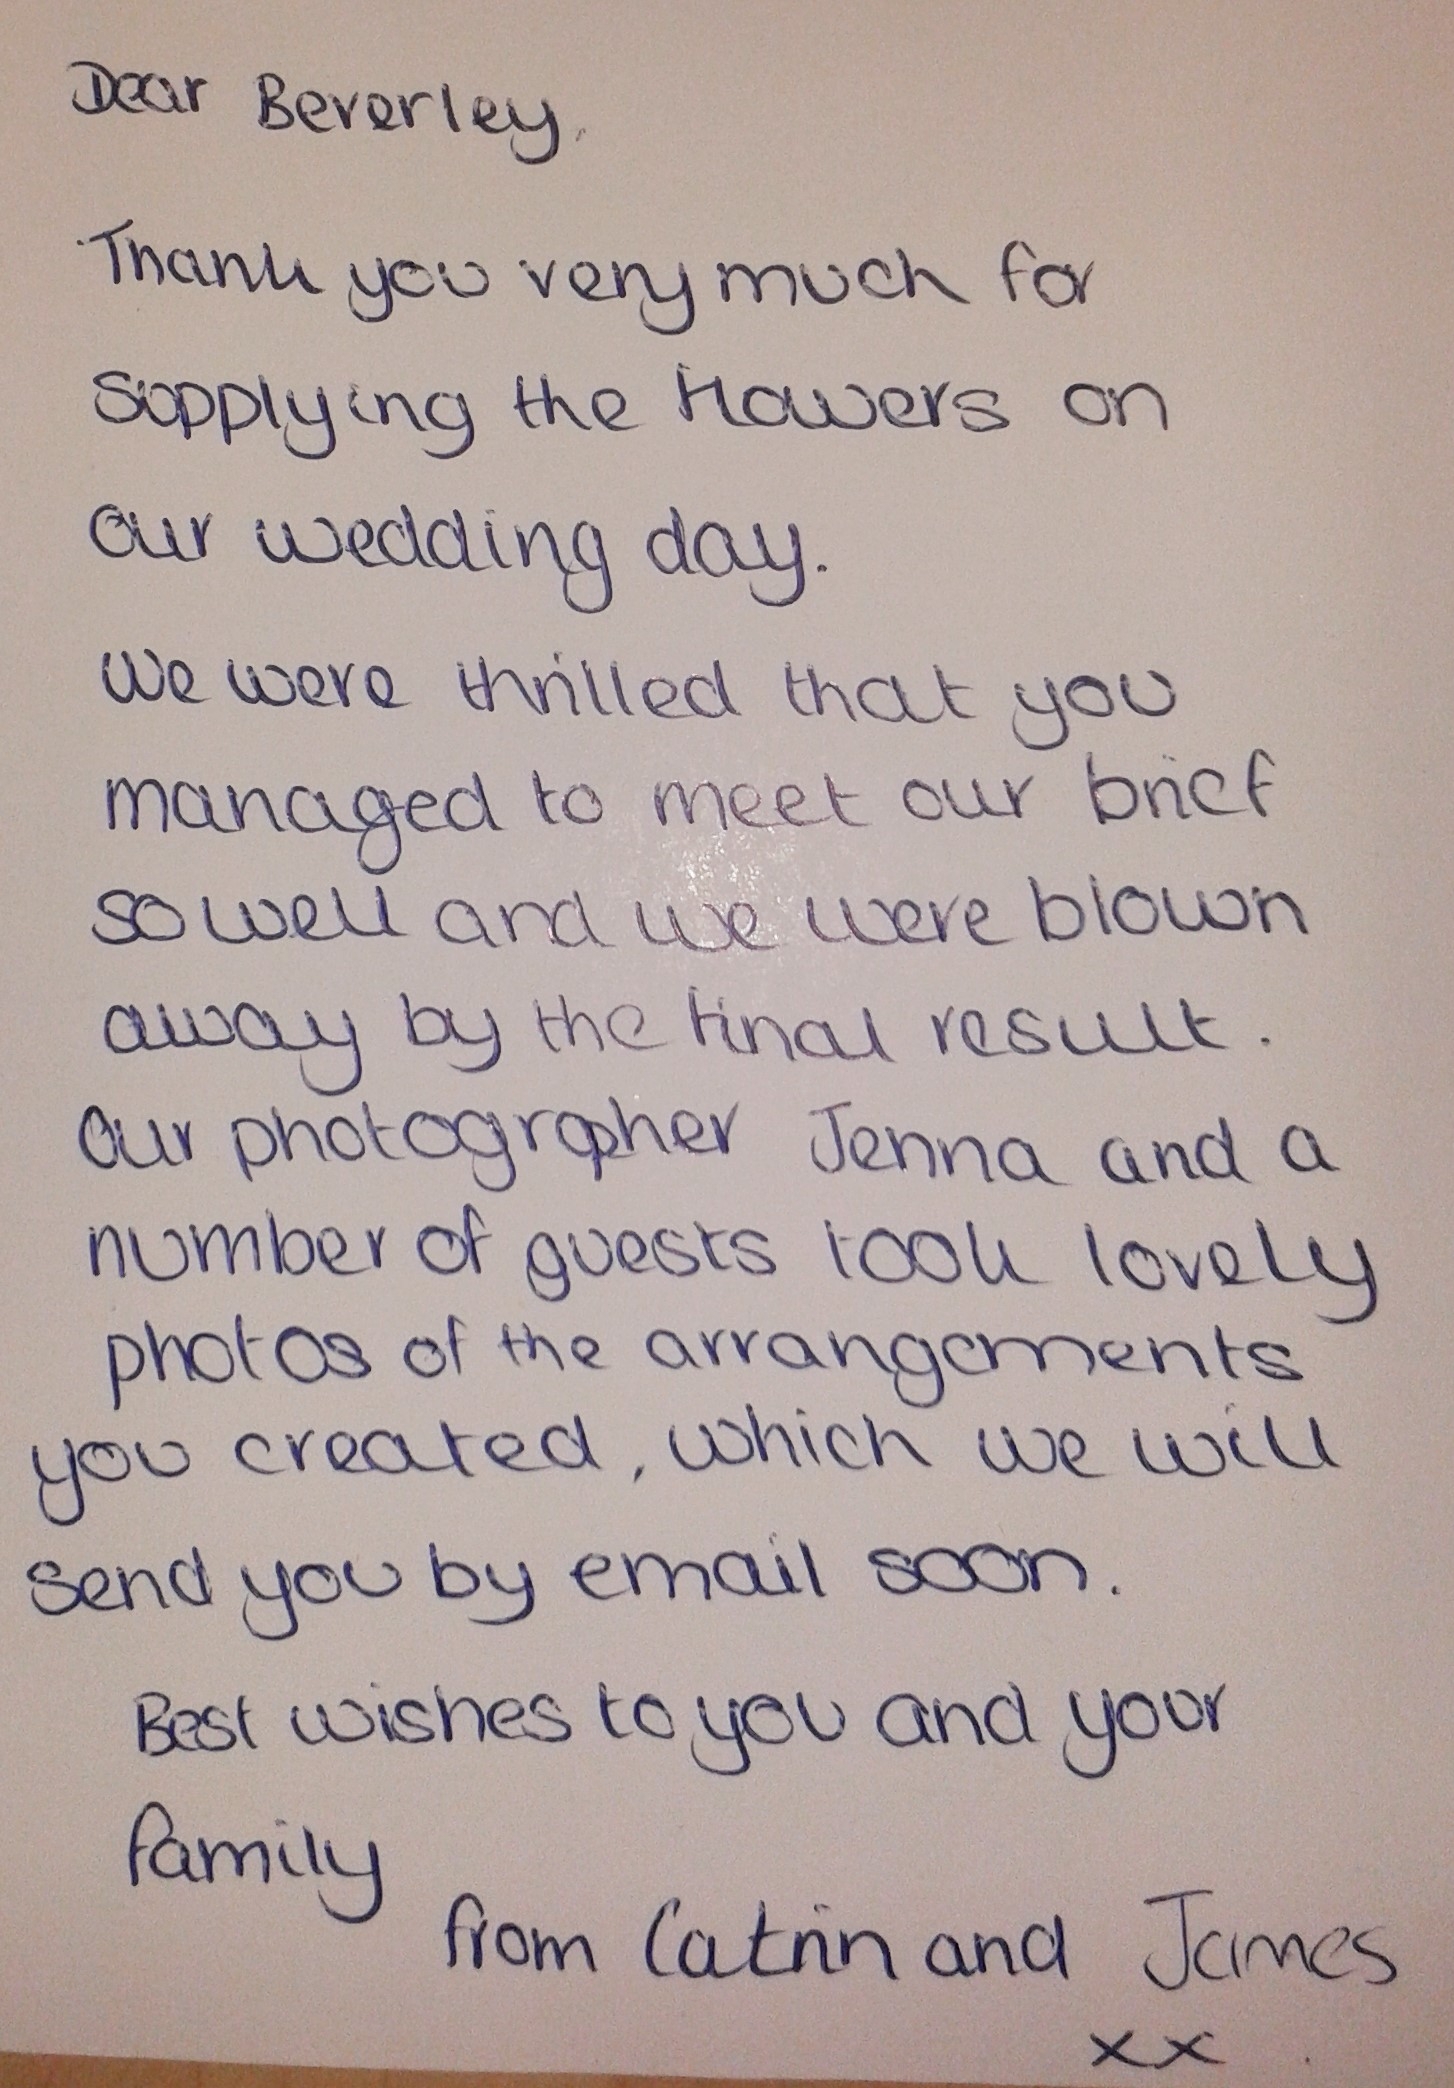 Dear Beverley,
Thank you very much for
supplying the flowers on
our wedding day.
We were thrilled that you
managed to meet our brief
so well and we were blown
away by the final result.
Our photographer Jenna and a
number of guests took lovely
photos of the arrangements
you created, which we will
send you by email soon.
Best wishes to you and your
family
from Catrin and James
xx